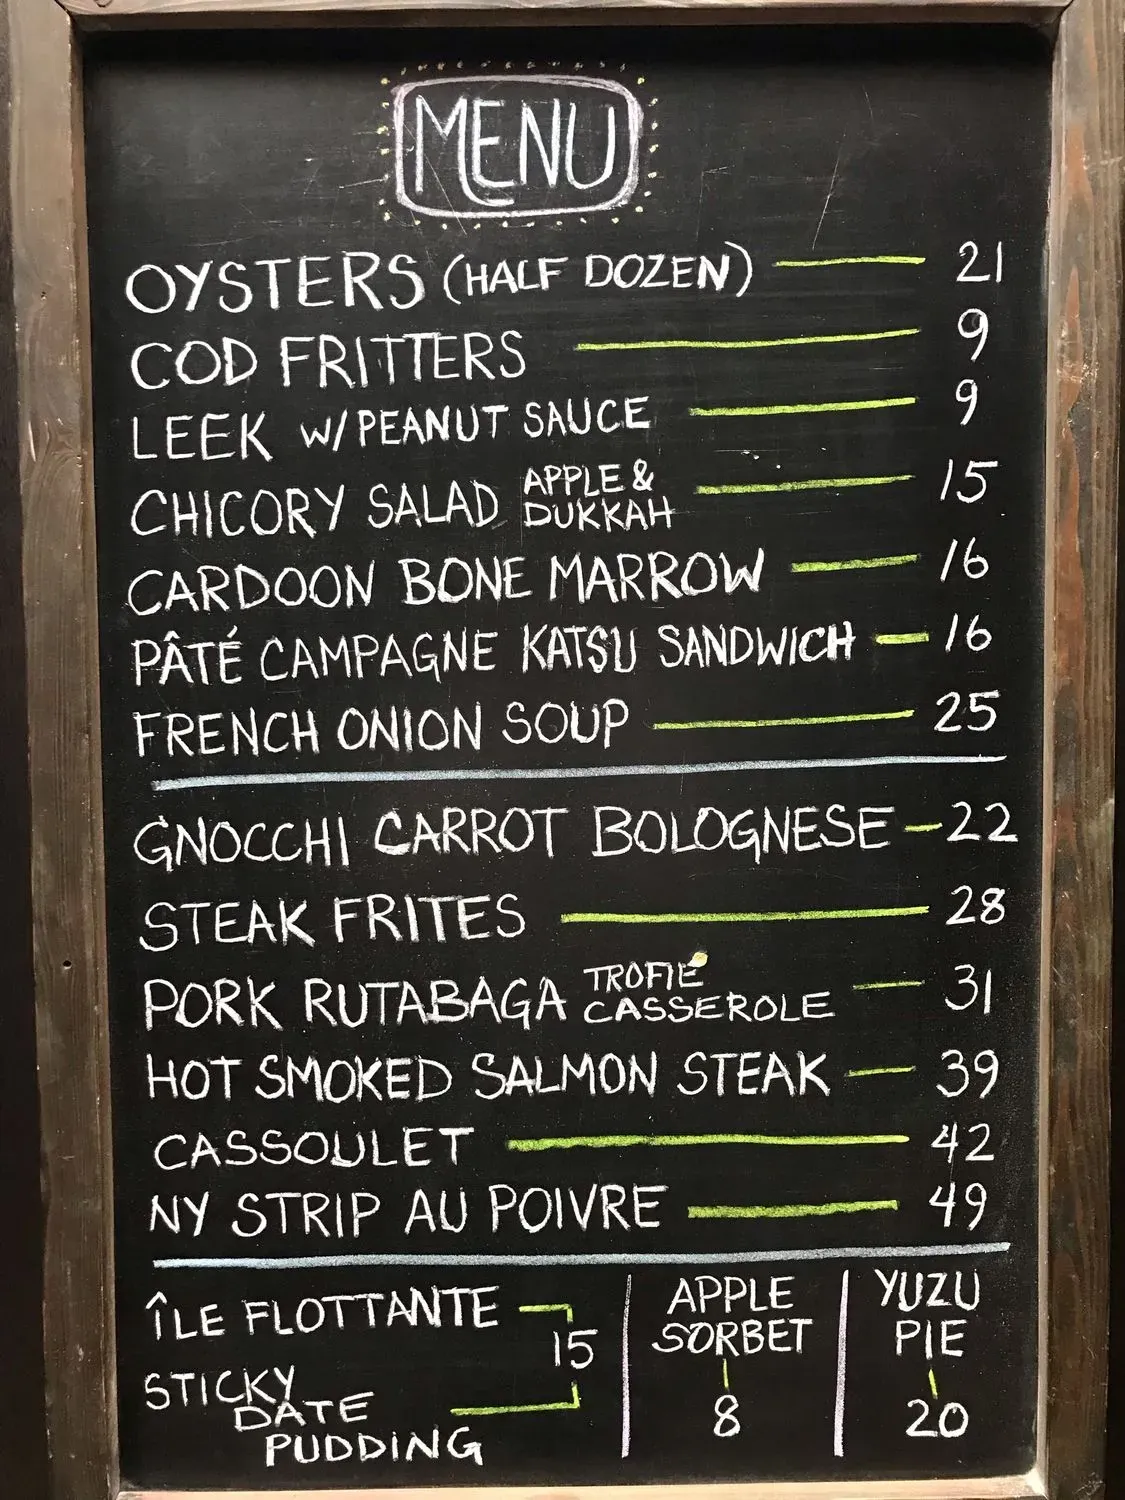 MENU
OYSTERS (HALF DOZEN) 21
COD FRITTERS 9
LEEK W/ PEANUT SAUCE 9
CHICORY SALAD APPLE & DUKKAH 15
CARDOON BONE MARROW 16
PÂTÉ CAMPAGNE KATSU SANDWICH 16
FRENCH ONION SOUP 25
GNOCCHI CARROT BOLOGNESE 22
STEAK FRITES 28
PORK RUTABAGA TROFIE CASSEROLE 31
HOT SMOKED SALMON STEAK 39
CASSOULET 42
NY STRIP AU POIVRE 49
ÎLE FLOTTANTE
15
STICKY
DATE
PUDDING
APPLE
SORBET
8
YUZU
PIE
20